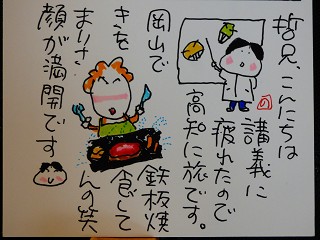 哲兄、こんにちは
講義に
疲れたので
高知に旅です。
岡山で鉄板焼
きを食して
まりさんの笑
顔が満開です
の